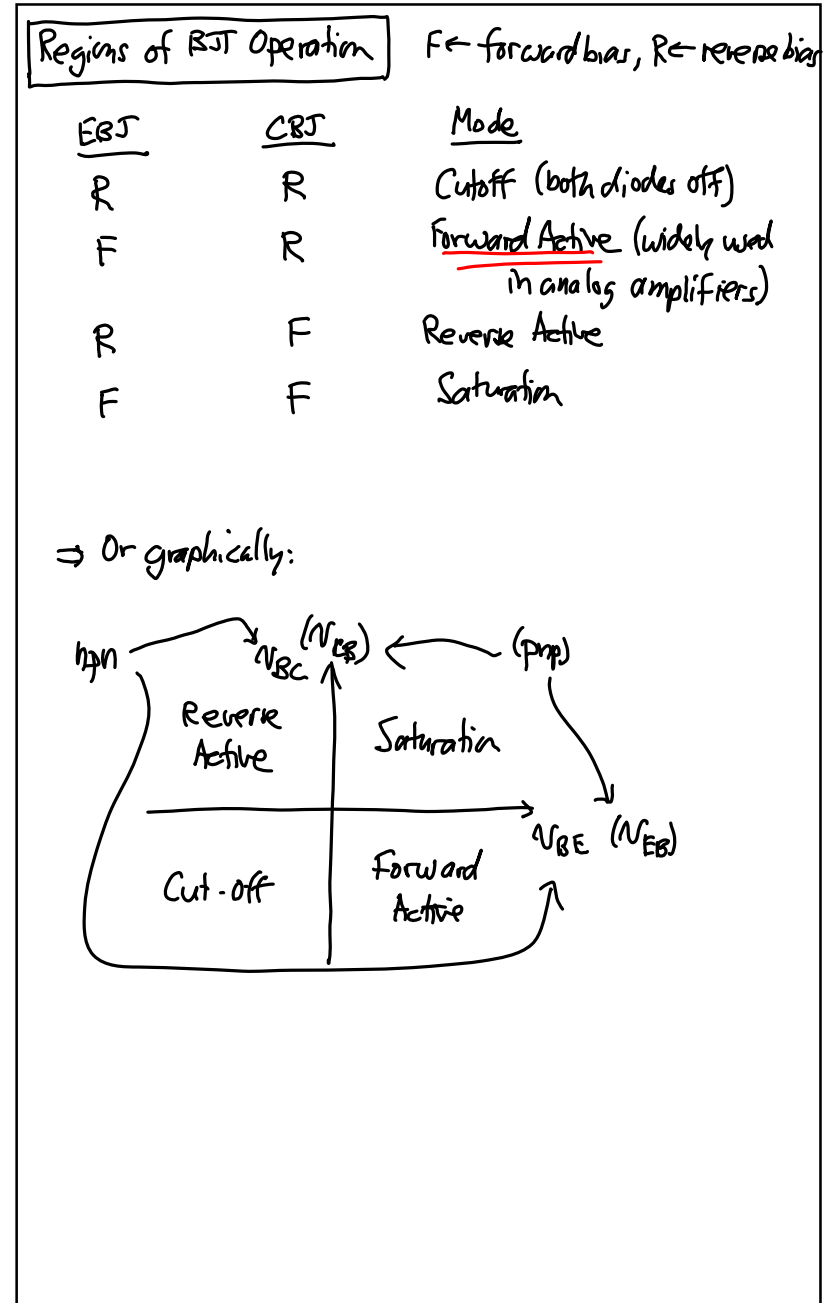 Regions of BJT Operation F← forward bias, R← reverse bias
EBJ CBJ Mode
R R Cutoff (both diodes off)
F R Forward Active (widely used
in analog amplifiers)
R F Reverse Active
F F Saturation
⇒ Or graphically:
npn v_BC (v_CB) (pnp)
Reverse
Active
Saturation
v_BE (v_EB)
Cut-off
Forward
Active